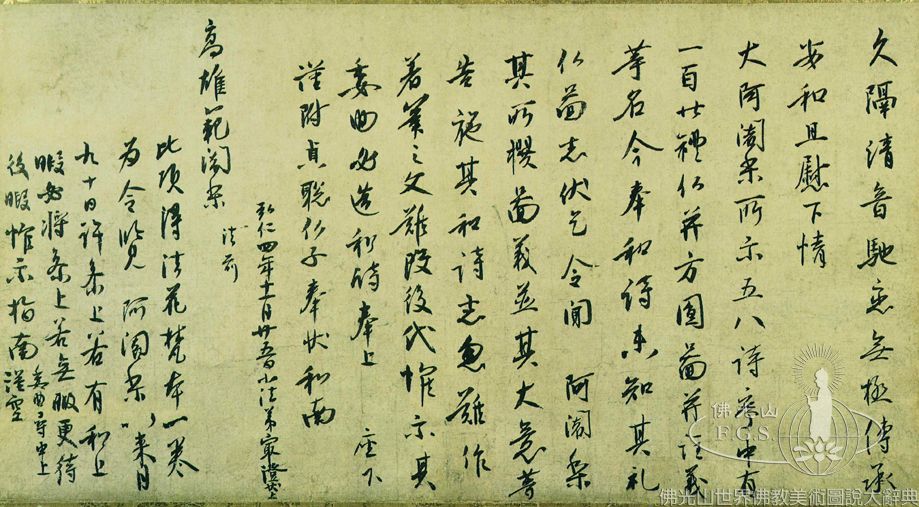 久隔清音馳恋無極傳承
安和且慰下情
大阿闍梨所示五八詩序中有
一百廿禮仏并方圓圖并註義
等名今奉和詩未知其礼
仏圖者伏乞令聞 阿闍梨
其所撰圖義並其大意等
告施其和詩者忽難作
著筆之文難改後代惟示其
委曲必造和詩奉上 座下
謹附貞聡仏子奉状和南
弘仁四年十一月廿五日小法弟最澄状上
高雄範闍梨
法前
此頃得法花梵本一巻
為令覧 阿闍梨以来月
九十日許参上若有和上
暇必将参上若無暇更待
後暇惟示指南 謹空
佛光山
F.G.S.
佛光山世界佛教美術圖說大辭典